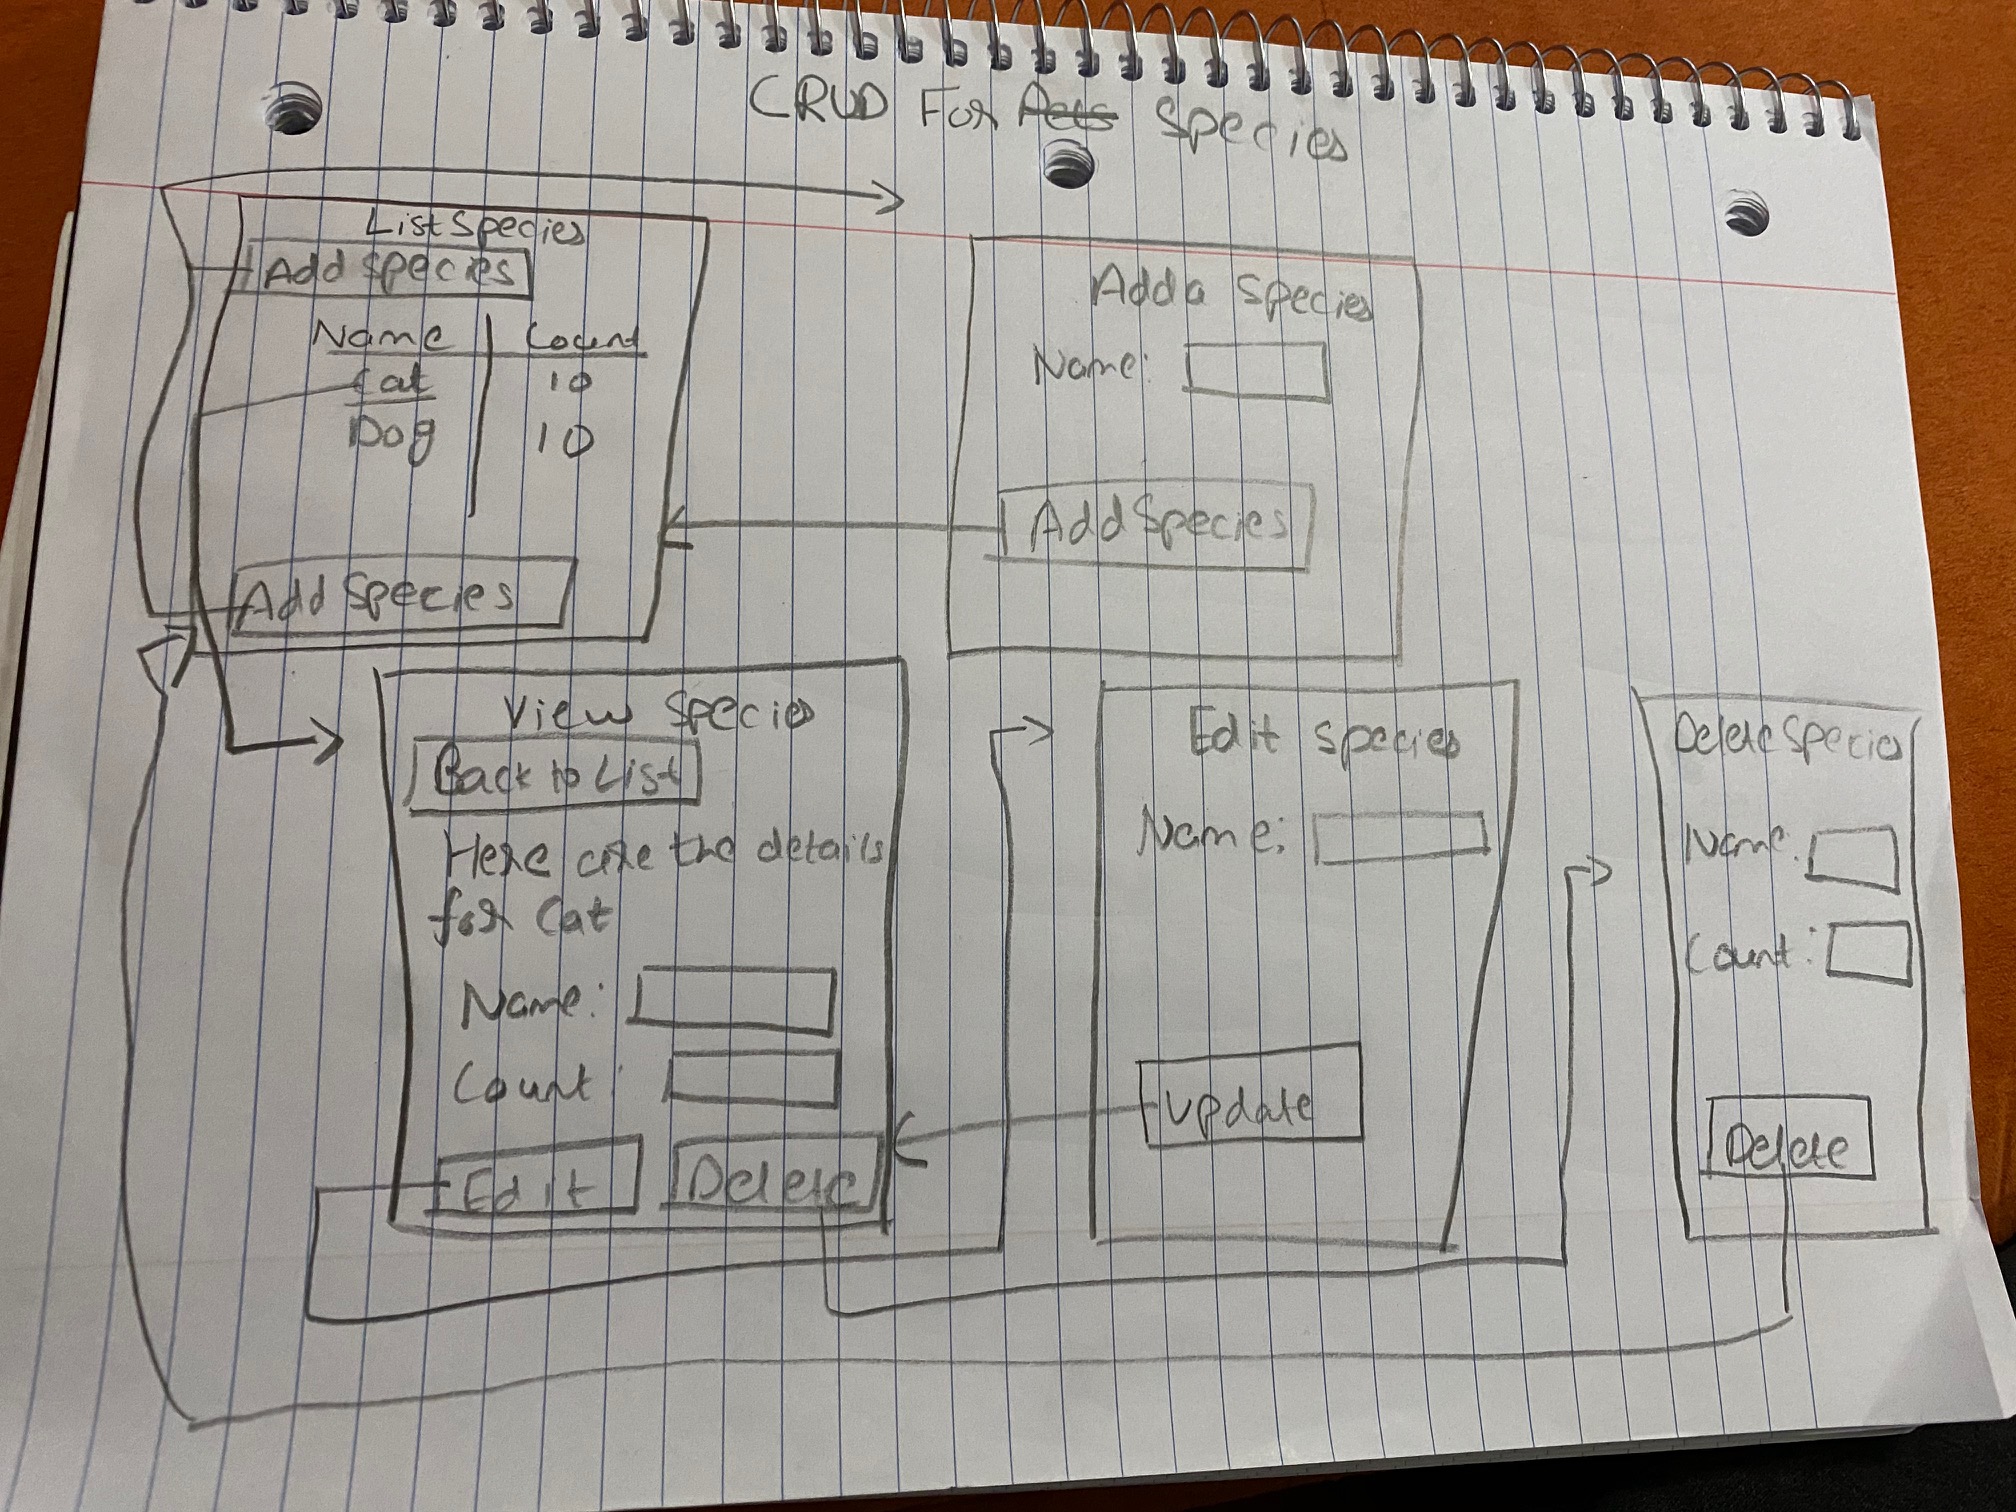 CRUD For Pets Species
List Species
Add Species
Name Count
Cat 10
Dog 10
Add Species
Add a Species
Name:
Add Species
View Species
Back to List
Here are the details
for Cat
Name:
Count:
Edit Delete
Edit Species
Name:
Update
Delete Species
Name:
Count:
Delete